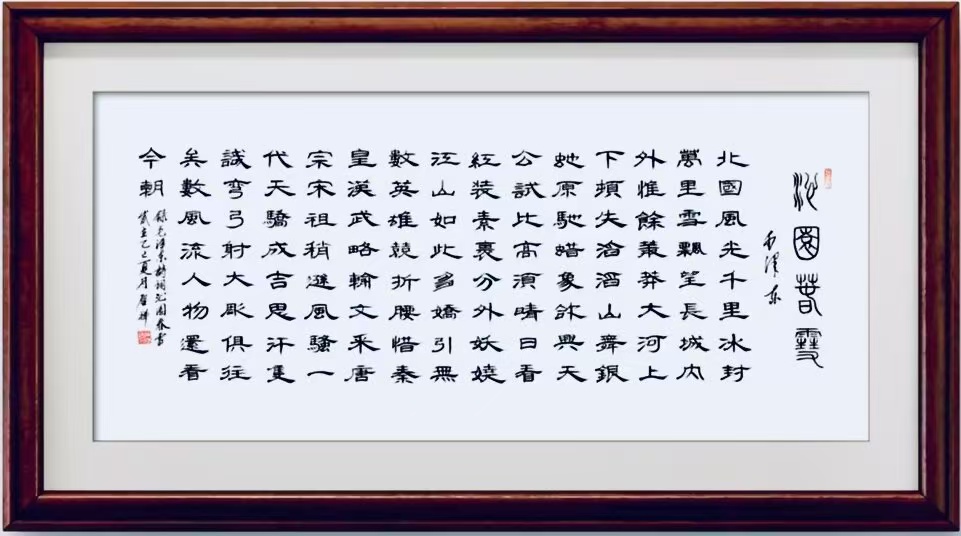 沁園春雪
毛澤东
北國風光千里冰封
萬里雪飄望長城内
外惟餘莽莽大河上
下頓失滔滔山舞銀
虵原馳蠟象欲與天
公試比高須晴日看
紅裝素裹分外妖嬈
江山如此多嬌引無
數英雄競折腰惜秦
皇漢武略輸文采唐
宗宋祖稍遜風騷一
代天驕成吉思汗隻
識彎弓射大彫俱往
矣數風流人物還看
今朝
錄毛澤东詩詞沁园春雪
歲在乙巳夏月